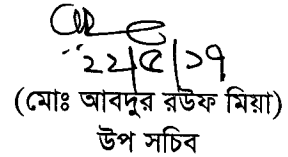 ২২/৫/১৭
(মোঃ আবদুর রউফ মিয়া)
উপ সচিব